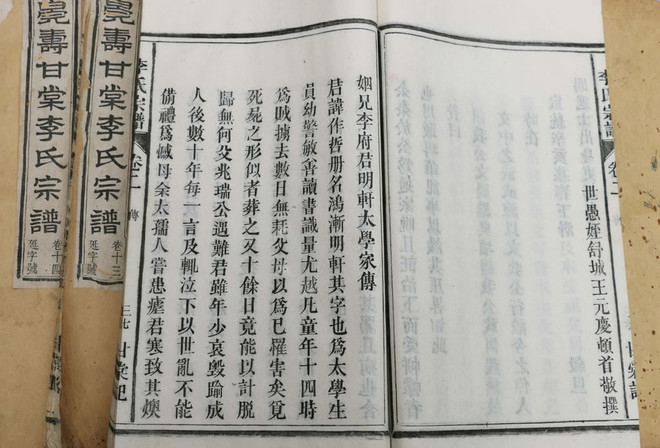 李氏宗譜
卷二
世愚姪舒城王元慶頓首敬撰
姻兄李府君明軒太學家傳
君諱作哲册名鴻漸明軒其字也爲太學生
員幼警敏善讀書識量尤越凡童年十四時
爲賊擄去數日無耗父母以爲已罹害矣覓
死屍之形似者葬之又十餘日竟能以計脫
歸無何父兆瑞公遇難君雖年少哀毀踰成
人後數十年每一言及輒泣下以世亂不能
備禮爲憾母余太孺人嘗患瘧君寒致其燠
李氏宗譜
卷二
傳
三七
壽甘棠李氏宗譜
卷十三
字號
壽甘棠李氏宗譜
卷十四
字號